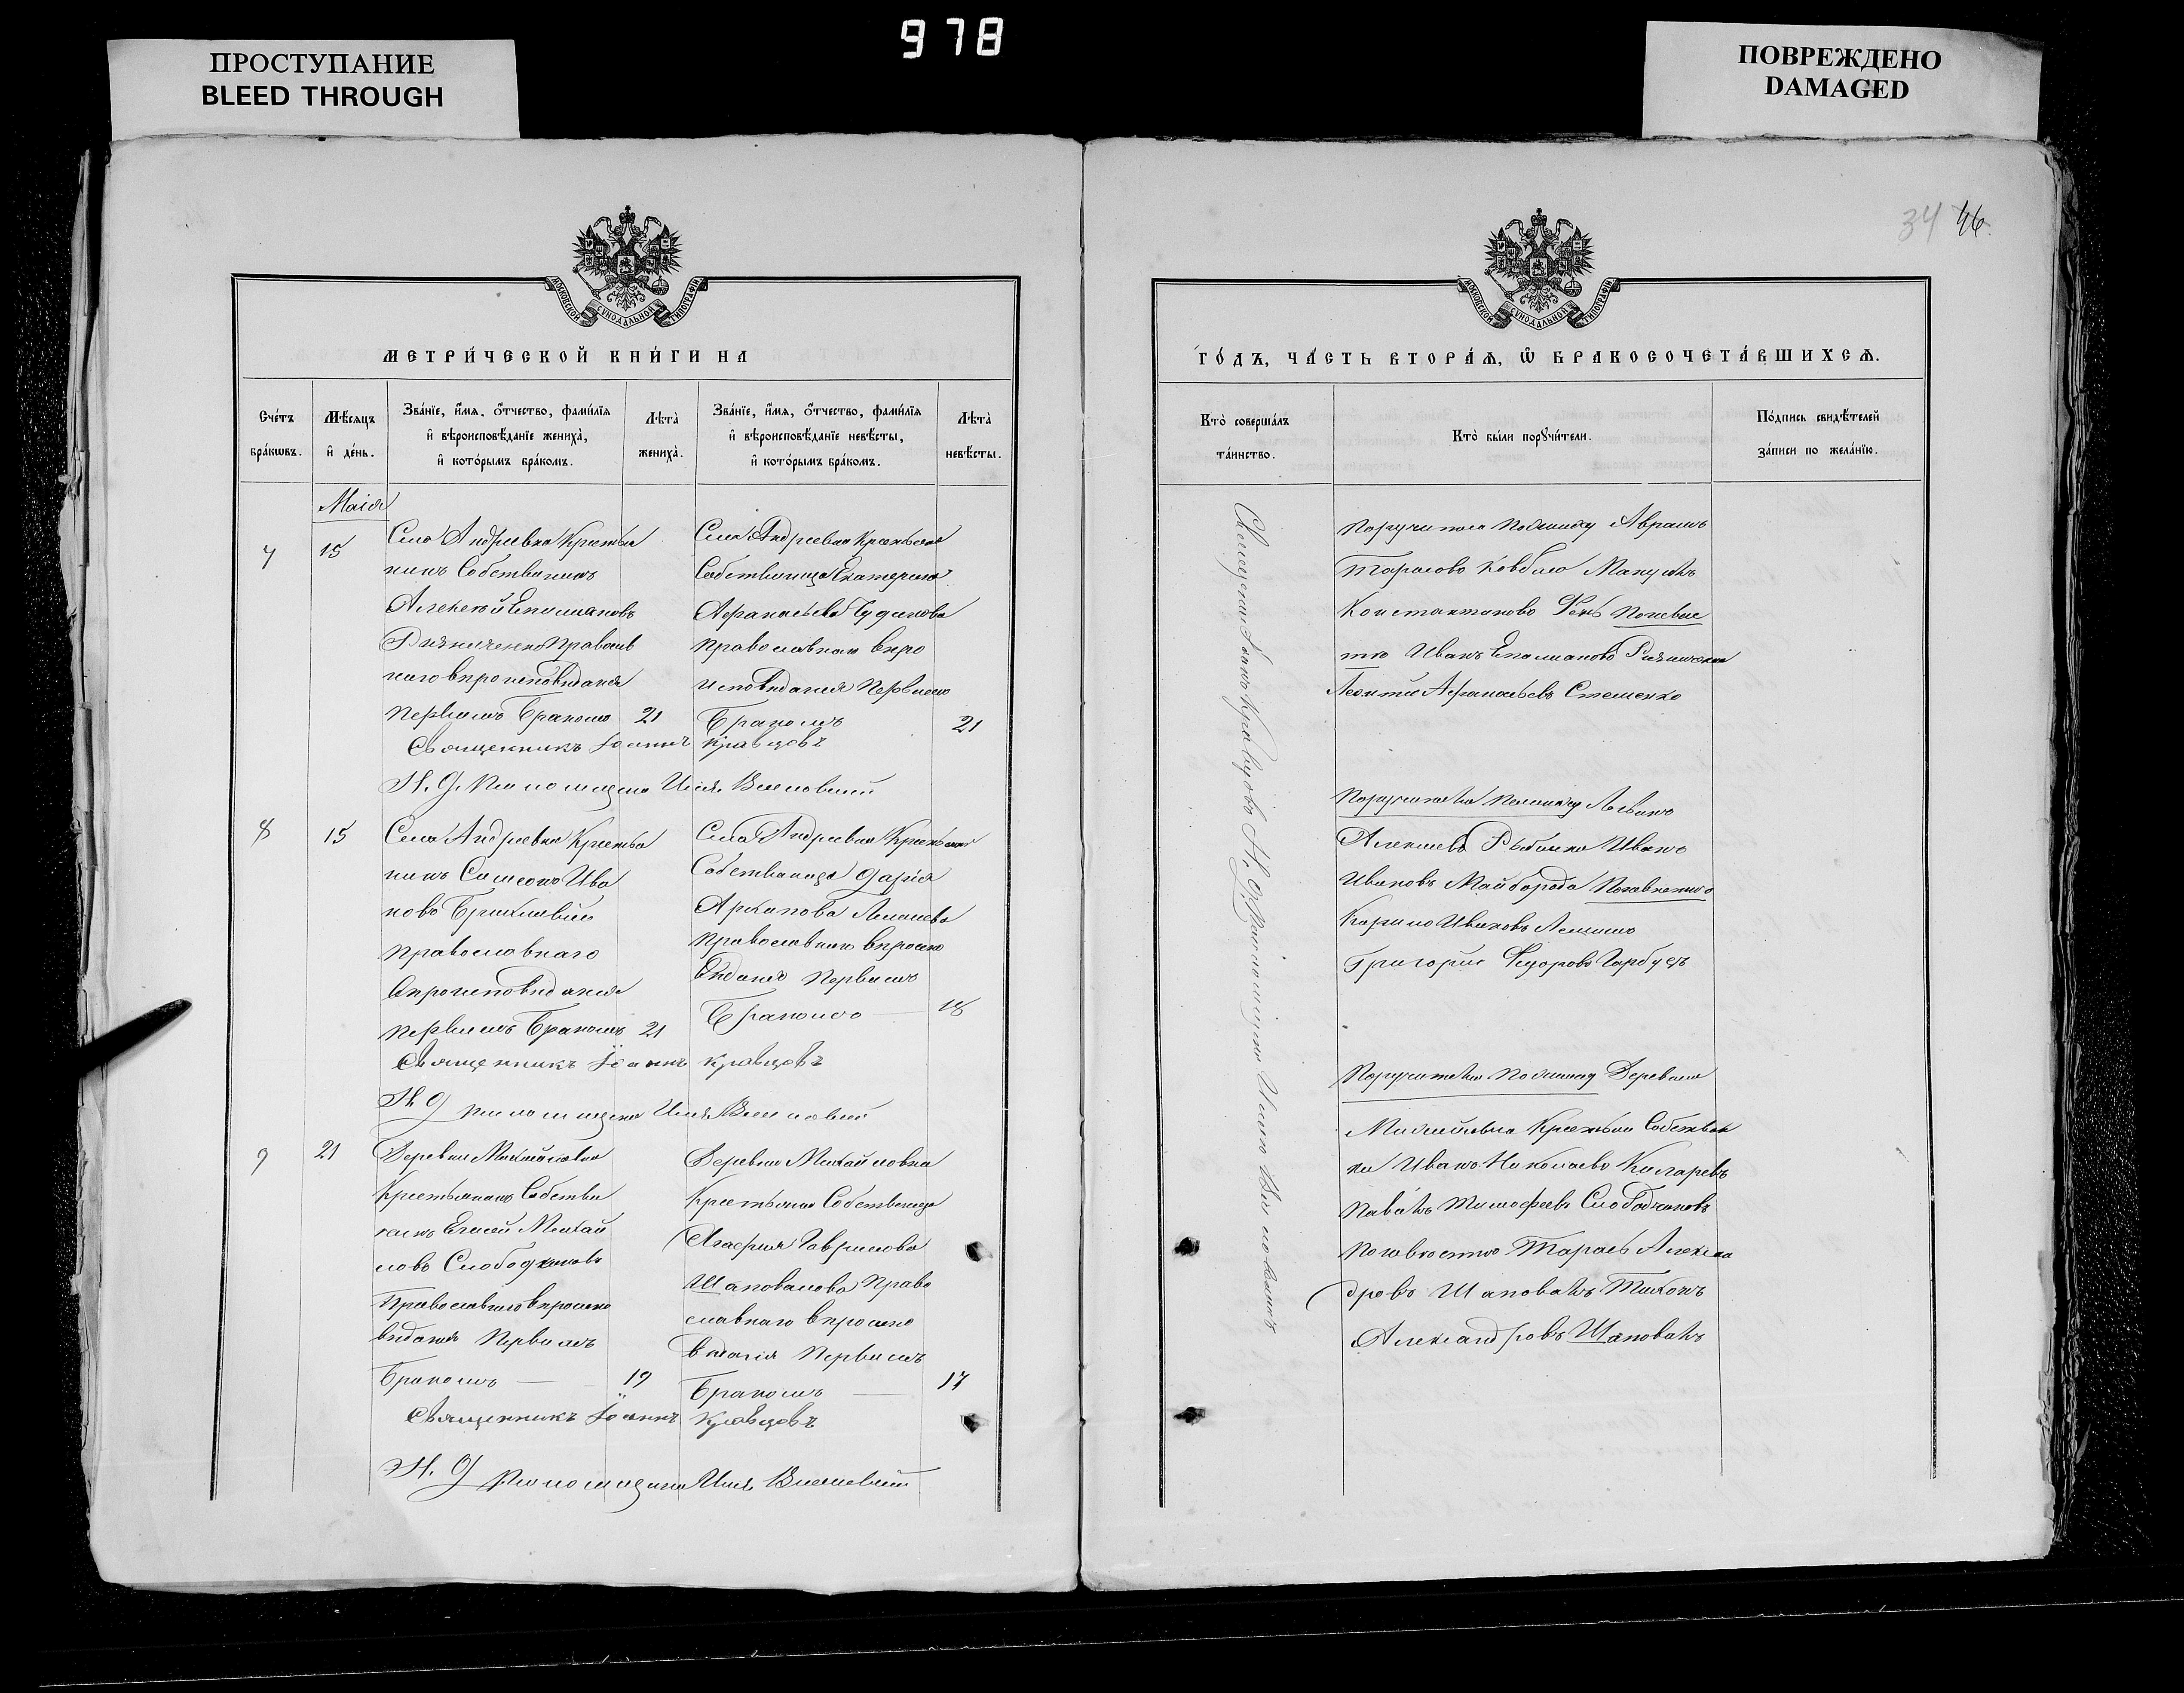 978
ПРОСТУПАНИЕ
BLEED THROUGH
ПОВРЕЖДЕНО
DAMAGED
34 46.
МОСКОВСКОЙ СѴНОДАЛЬНОЙ ТИПОГРАФІИ
МЕТРИ́ЧЕСКОЙ КНИ́ГИ НА
Сче́тъ бра́кѡвъ.
Мѣ́сяцъ и҆ де́нь.
Зва́нїе, и҆́мя, ѻ҆́тчество, фами́лїя и҆ вѣроисповѣ́данїе жениха̀, и҆ кото́рымъ бра́комъ.
Лѣта̀ жениха̀.
Зва́нїе, и҆́мя, ѻ҆́тчество, фами́лїя и҆ вѣроисповѣ́данїе невѣ́сты, и҆ кото́рымъ бра́комъ.
Лѣта̀ невѣ́сты.
Маія
7
15
Села Андреевки Крестья
нинъ Собственникъ
Алексѣй Епимановъ
православ
наго вѣроисповѣданія
первымъ бракомъ 21
Села Андреевки Крестьянка
Собственница Екатерина
Афанасьева Чудинова
православнаго вѣро
исповѣданія первымъ
бракомъ
21
Священникъ Іоаннъ Кравцовъ
И. Д. Псаломщика Илія
8
15
Села Андреевки Крестья
нинъ Симеонъ Ива
новъ
православнаго
вѣроисповѣданія
первымъ бракомъ 21
Села Андреевки Крестьянка
Собственница Дарія
православнаго вѣроиспо
вѣданія первымъ
бракомъ
18
Священникъ Іоаннъ Кравцовъ
И. Д. Псаломщика Илія
9
21
Деревни Михайловки
Крестьянинъ Собствен
никъ Елисей Михай
ловъ Слободчиковъ
Православнаго вѣроиспо
вѣданія первымъ
бракомъ
19
Деревни Михайловки
Крестьянка Собственница
Агафія Гаврилова
Шаповалова право
славнаго вѣроиспо
вѣданія первымъ
бракомъ
17
Священникъ Іоаннъ Кравцовъ
И. Д. Псаломщика Илія
МОСКОВСКОЙ СѴНОДАЛЬНОЙ ТИПОГРАФІИ
ГО́ДЪ, ЧА́СТЬ ВТОРА́Ѧ, Ѡ҆ БРАКОСОЧЕТА́ВШИХСѦ.
Кто̀ соверша́лъ та́инство.
Кто̀ бы́ли порꙋчи́тели.
По́дпись свидѣ́телей за́писи по жела́нїю.
Священникъ Іоаннъ Кравцовъ И. Д. Псаломщика Илія
Поручители по жениху Аврамъ
Тарасовъ Ковбаса
Константиновъ по невѣс
тѣ Иванъ Епимановъ
Леонтій Афанасьевъ Стеценко
Поручители по жениху
Алексѣевъ Иванъ
Ивановъ Майборода по невѣстѣ
Ивановъ
Григорій Федоровъ Гарбузъ
Поручители по жениху Деревни
Михайловки Крестьяне Собствен
ки Иванъ Николаевъ
Павелъ Тимофеевъ Слободчиковъ
по невѣстѣ Тарасъ Алексан
дровъ Шаповалъ Тихонъ
Александровъ Шаповалъ